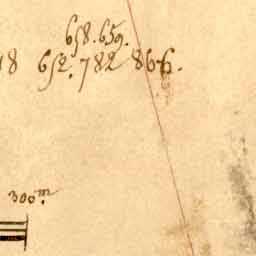 658.659.
18 652.782 866.
300m.